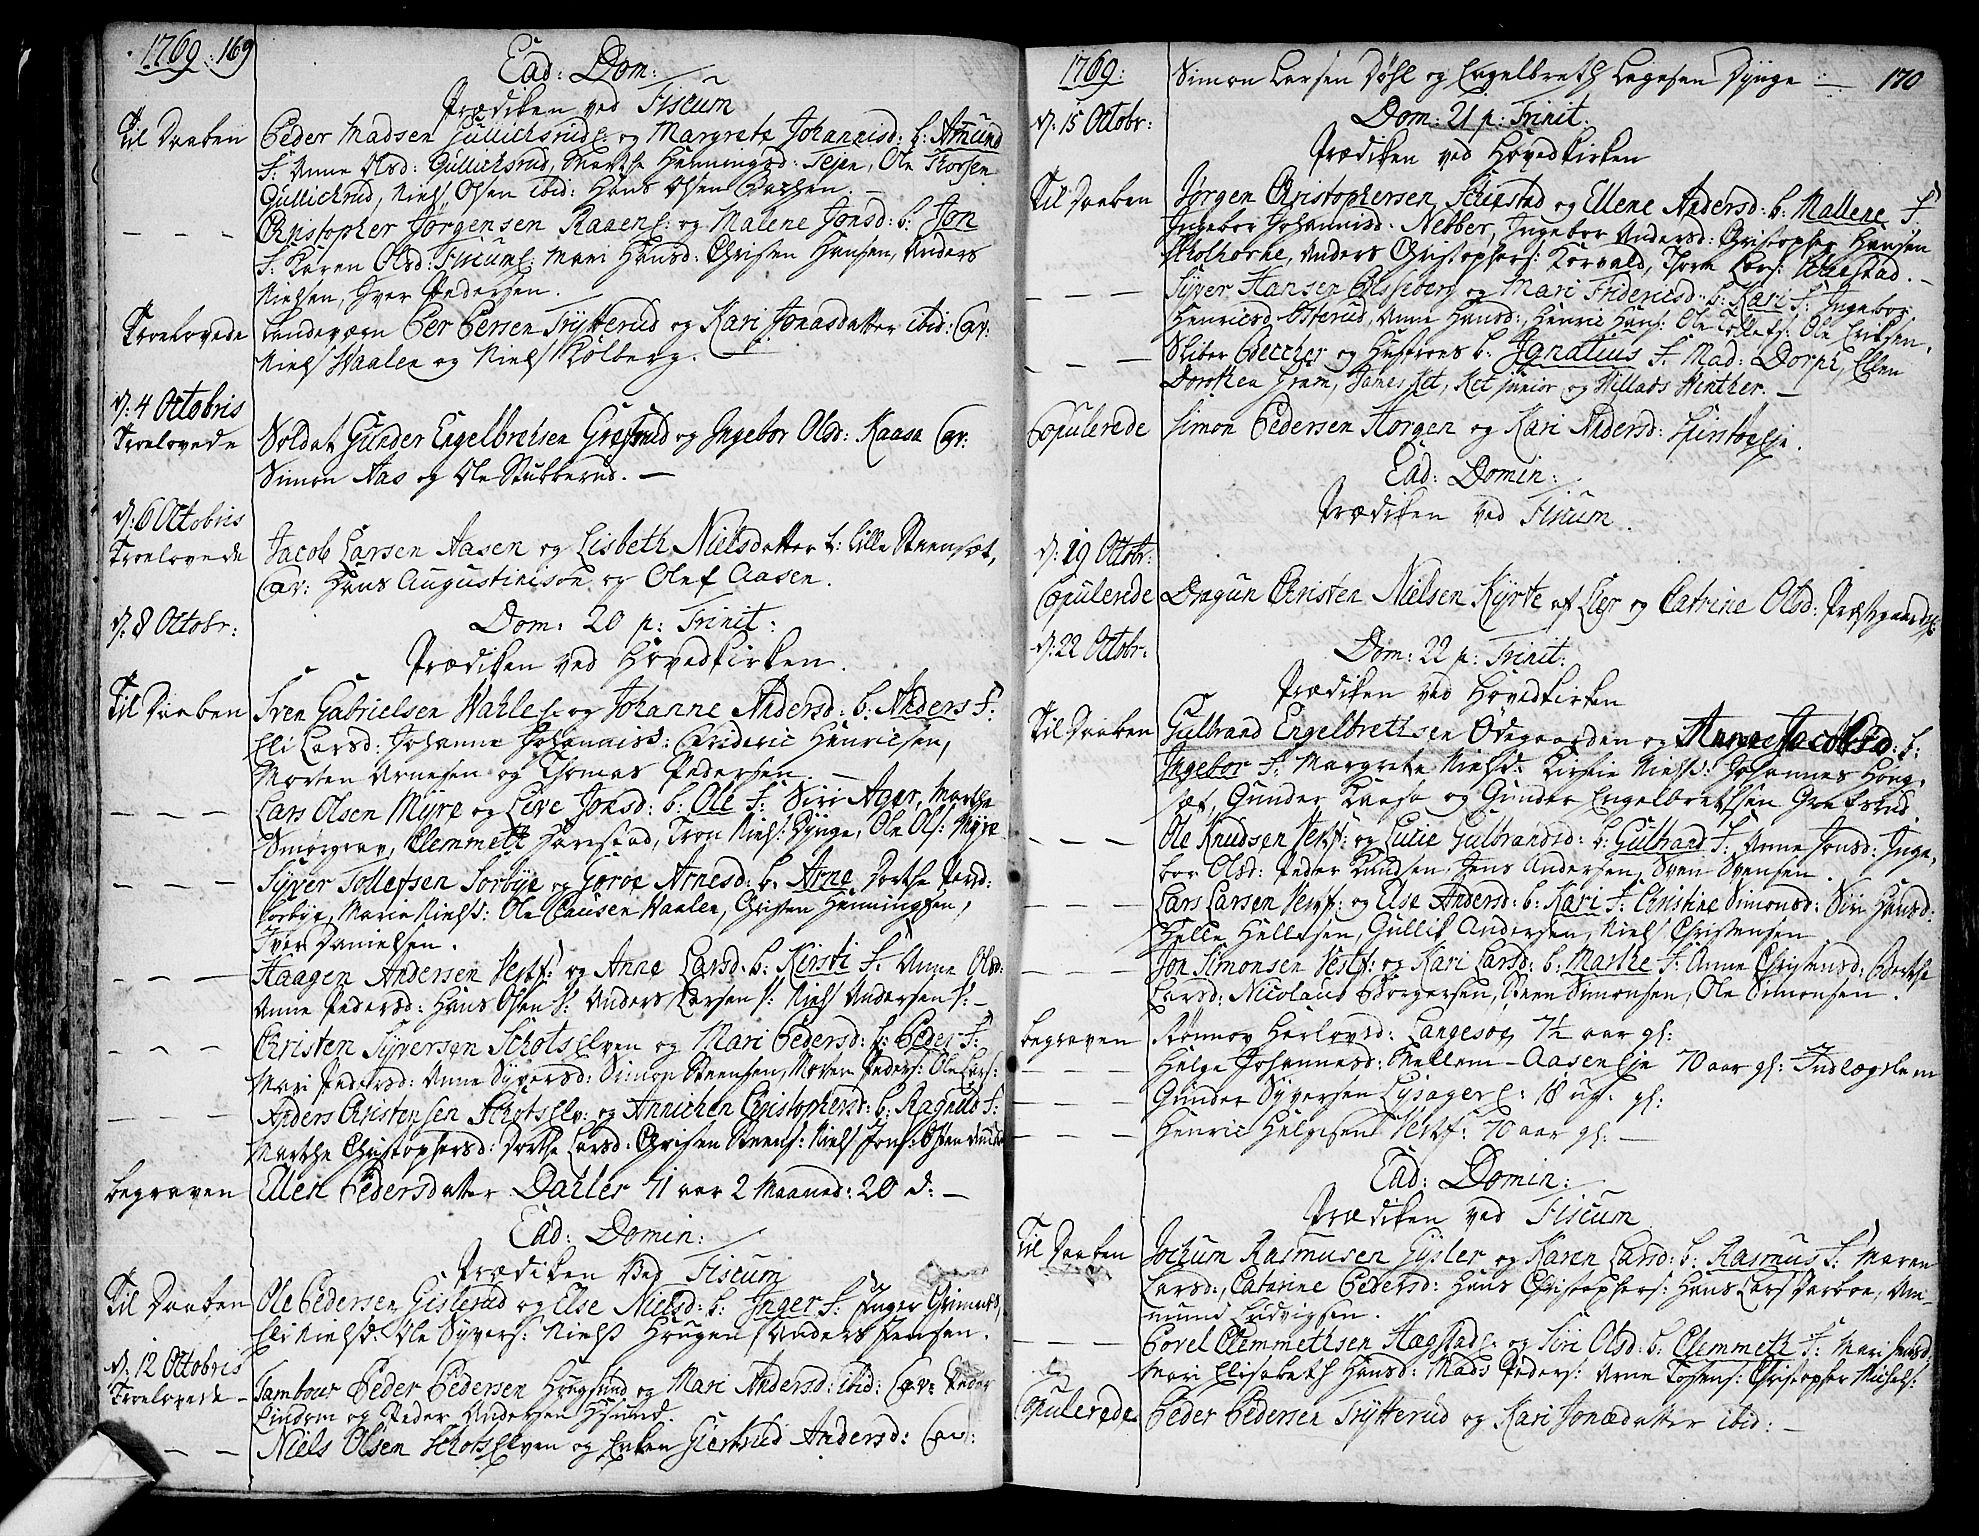 1769. 169
Ead: Dom:
Prædiken ved Fiscum
Til Daaben
Peder Madsen Gullichsrud E: og Margrete Johannisd: b: Amund
F: Anne Olsd: Gullichsrud, Marthe Henningsd: Teien, Ole Thorsen
Gullichrud, Niels Olsen ibid: Hans Olsen
— — — Christopher Jørgensen Raaen E: og Malene Jonsd: b: Jon
F: Karen Olsd: Fiscum E: Mari Hansd: Christen Hansen, Anders
Nielsen, Gver Pedersen.
Troelovede Landværn Per Persen Trytterud og Kari Jonasdatter ibid: Cav:
Niels Waalen og Niels Kolberg.
d: 4 Octobris
Troelovede Soldat Gunder Engelbretsen Grøsrud og Ingebor Olsd: Kaasa Cav:
Simon Aas og Ole Stubberud. —
d: 6 Octobris
Troelovede Jacob Larsen Aasen og Lisbeth Nielsdatter t: Lille Steenset,
Cav: Hans Augustinison og Olef Aasen.
d: 8 Octobr:
Dom: 20 p: Trinit:
Prædiken ved Hovedkirken.
Til Daaben Sven Gabrielsen Wahle E: og Johanne Andersd: b: Anders F:
Eli Larsd: Johanne Johannisd: Frideric Henricsen,
Morten Arnesen og Thomas Pedersen. —
— — — Lars Olsen Myre og Live Jonsd: b: Ole F: Siri Ager, Marthe
Smørgrav, Clemmett Harestad, Tron Niels: Dynge, Ole Ols: Myre
— — — Syver Tollefsen Sorbye og Goroe Arnesd: b: Arne Dorthe Persd:
Sorbye, Marie Nielsd: Ole Clausen Waalen, Christen Henningsen,
Iver Danielsen.
— — — Haagen Andersen Vestf: og Anne Larsd: b: Kirsti F: Anne Olsd:
Anne Pedersd: Hans Olsen S: Anders Larsen S: Niels Andersen S: —
— — — Christen Syversen Schotselven og Mari Pedersd: b: Peder F:
Mari Pedersd: Anne Syversd: Simon Steensen, Morten Peders: Ole Lars:
— — — Anders Christensen Schotselv: og Annichen Christophersd: b: Ragnild F:
Marthe Christophersd: Dorthe Larsd: Christen Steens: Niels Jons: Osten
begraven Ellen Pedersdatter Dahler 41 aar 2 Maaned: 20 d: —
Ead: Domin:
Prædiken Ved Fiscum
Til Daaben Ole Pedersen Gislerud og Else Nielsd: b: Inger F: Inger
Eli Nielsd: Ole Syvers: Niels Haugen, Anders Jensen.
d: 12 Octobris
Troelovede — Tambour Peder Pedersen Hougsund og Mari Andersd: ibid: Cav: Peder
Lindom og Peder Andersen Hsund.
— — Niels Olsen Schotselven og Enken Giertrud Andersd: Cav:
1769: Simon Larsen Døhl og Engelbreth Lagesen Dynge — 170
d: 15 Octobr: Dom: 21 p: Trinit.
Prædiken ved Hovedkirken
Til Daaben Jørgen Christophersen Schiestad og Ellene Andersd: b: Mallene F:
Ingebor Johannisd: Nebber, Ingebor Andersd: Christopher Hansen
Skolhorne, Anders Christophers: Korvald, Thore Lars: Schiestad. —
— — — Syver Hansen og Mari Fridericsd: b: Kari F: Ingebor
Henricsd Østerud, Anne Hansd:, Henric Hans: Ole Tollefs: Ole Eriksen.
— — — Skiber Beccher og Hustroes b: Ignatius F: Mad: Dorph, Ellen
Dorothea Gram, James Ket, Ket junior og Willads Winther. —
Copulerede Simon Pedersen Horgen og Kari Andersd: .
Ead: Domin:
Prædiken ved Fiscum.
d: 19 Octobr:
Copulerede Dragun Christen Nielsen Kyrte af Lier og Catrine Olsd: Præstgaards
d: 22 Octobr:
Dom: 22 p: Trinit:
Prædiken ved Hovedkirken
Til Daaben Gulbrand Engelbrethsen Odegaarden og Anne Jacobsd: b:
Ingebor F: Margrete Nielsd: Kirstie Nielsd: Johannes Hong-
set, Gunder Kaasa og Gunder Engelbrethsen Grøfsrud.
— — — Ole Knudsen Vestf: og Lucie Gulbrandsd: b: Gulbrand F: Anne Jonsd: Inge-
bor Olsd: Peder Knudsen, Jens Andersen, Sven Svensen.
— — — Lars Larsen Vestf: og Else Andersd: b: Kari F: Christine Simonsd: Siri Hansd:
Helle Hellesen, Gullik Andersen, Niels Christensen
— — — Jon Simonsen Vestf: og Kari Larsd: b: Marthe F: Anne Christensd: Berthe
Larsd: Nicolaus Borgersen, Steen Simonsen, Ole Simonsen.
begraven Rønnov Herlovsd: Langesoe 7½ aar gl:
— — — Helge Johannesd: Mellem-Aasen Eie 70 aar gl: Indlægslem
— — — Gunder Syversen Lysager E: 18 ug: gl:
— — — Henric Helgesen Vestf: 70 aar gl: —
Ead: Domin:
Prædiken ved Fiscum
Til Daaben Jochum Rasmusen Gysler og Karen Larsd: b: Rasmus F: Maren
Larsd:, Catarine Pedersd: Hans Christophers: Hans Lars: Darboe, Am-
mund Ludvigsen.
— — Povel Clemmethsen Hagstad E: og Siri Olsd: b: Clemmett F: Mari
Mari Elisabeth Hansd: Mads Peders: Arne Tostens: Christopher Michels:
Copulerede Peder Pedersen Trytterud og Kari Jonædatter ibid: —